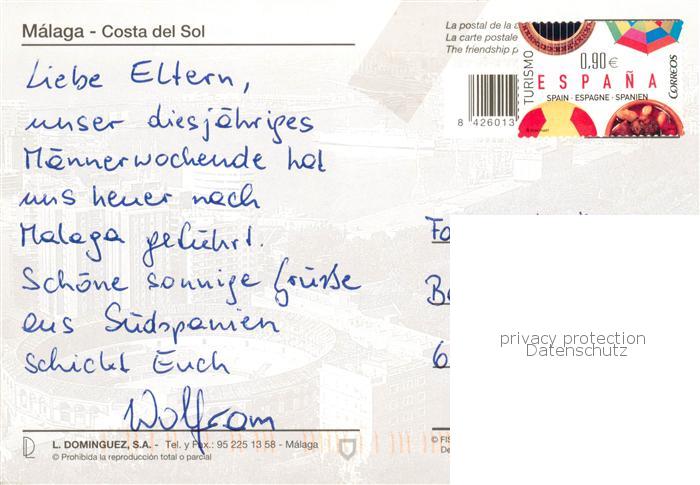 Málaga - Costa del Sol
La postal de la a
La carte postale
The friendship p
TURISMO
0,90€
ESPAÑA
SPAIN · ESPAGNE · SPANIEN
CORREOS
8 426013
Liebe Eltern,
unser diesjähriges
Männerwochende hat
uns heuer nach
Malaga geführt.
Schöne sonnige Grüsse
aus Südspanien
schickt Euch
Wolfram
Fa
Be
6
privacy protection
Datenschutz
L. DOMINGUEZ, S.A. - Tel. y Fax.: 95 225 13 58 - Málaga
© Prohibida la reproducción total o parcial
© FIS
De